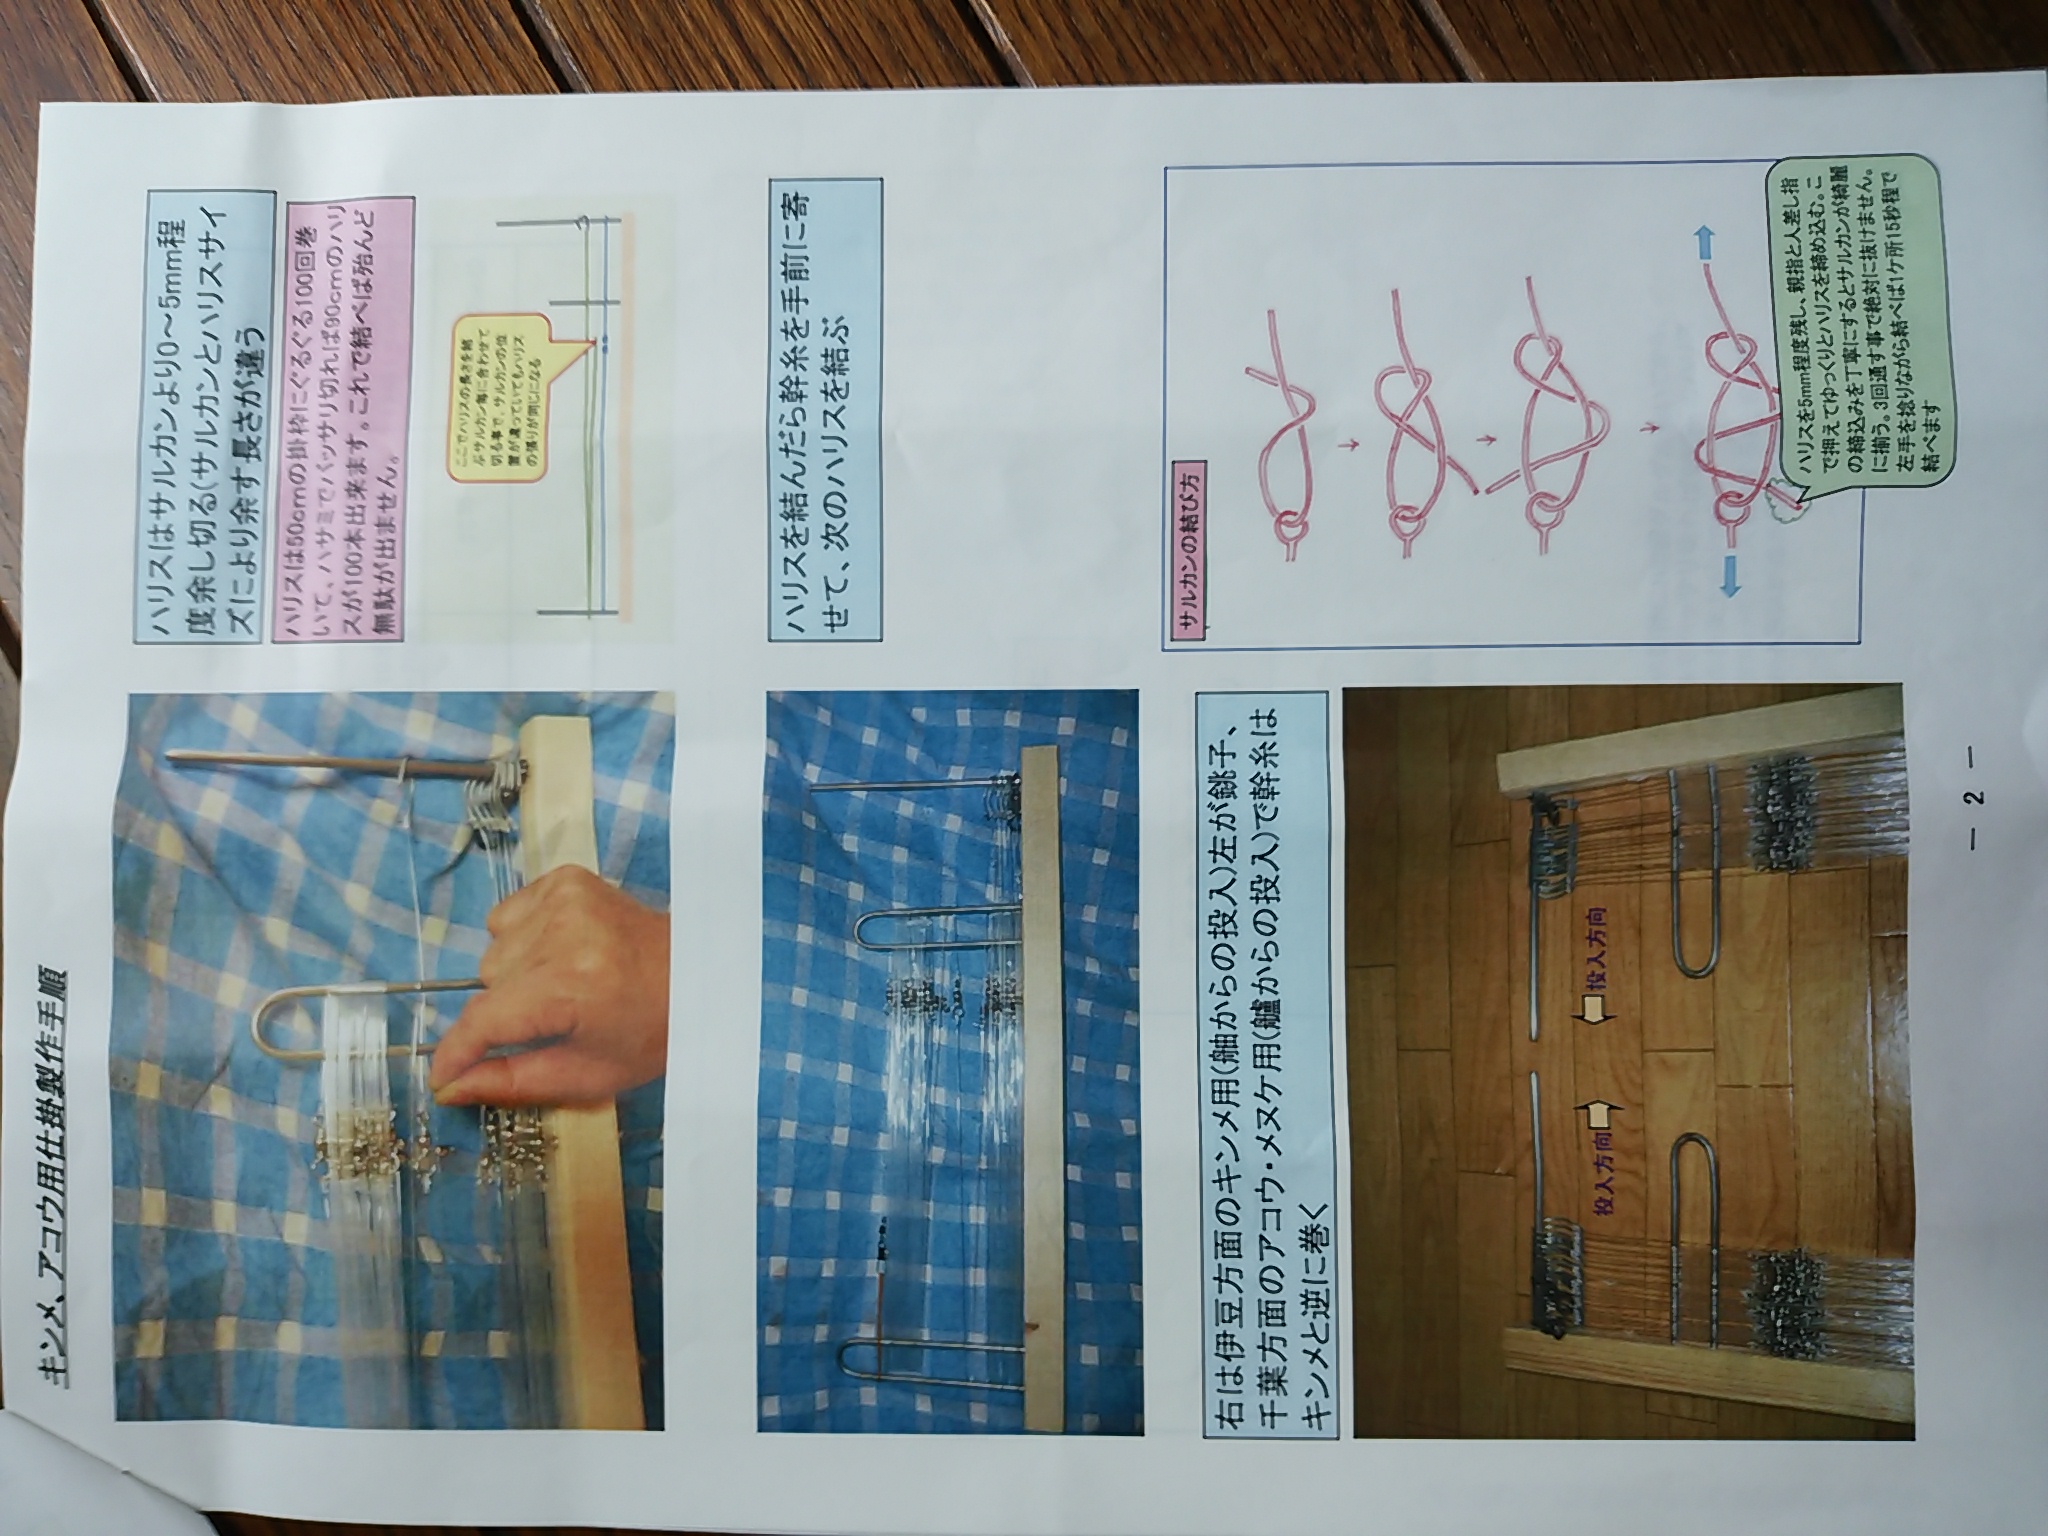 キンメ、アコウ用仕掛製作手順
ハリスはサルカンより0～5mm程
度余し切る(サルカンとハリスサイ
ズにより余す長さが違う
ハリスは50cmの掛枠にぐるぐる100回巻
いて、ハサミでバッサリ切れば90cmのハリ
スが100本出来ます。これで結べば殆んど
無駄が出ません。
ここでハリスの長さを結
ぶサルカン毎に合わせて
切る事で、サルカンの位
置が違っていてもハリス
の張りが同じになる
ハリスを結んだら幹糸を手前に寄
せて、次のハリスを結ぶ
右は伊豆方面のキンメ用(舳からの投入)左が銚子、
千葉方面のアコウ・メヌケ用(艫からの投入)で幹糸は
キンメと逆に巻く
投入方向
投入方向
サルカンの結び方
ハリスを5mm程度残し、親指と人差し指
で押えてゆっくりとハリスを締め込む。こ
の締込みを丁寧にするとサルカンが綺麗
に揃う。3回通す事で絶対に抜けません。
左手を捻りながら結べば1ケ所15秒程で
結べます
― 2 ―